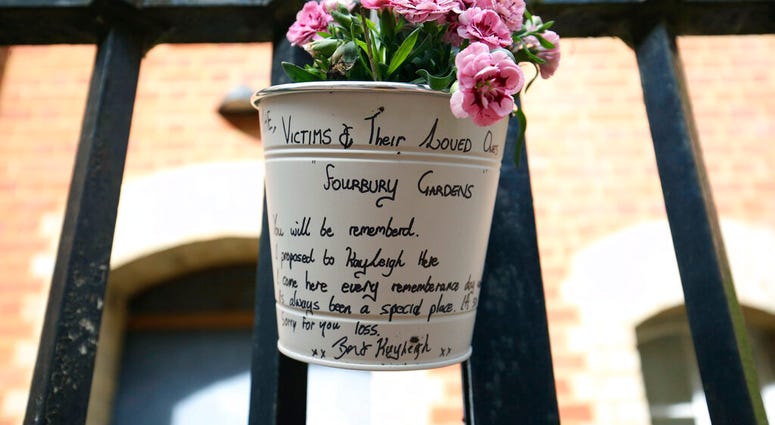 Victims & Their Loved Ones
"Fourbury Gardens"
You will be rememberd.
I proposed to Kayleigh Here
I come here every rememberance day
always been a special place.
Sorry for you loss.
xx Ben & Kayleigh xx